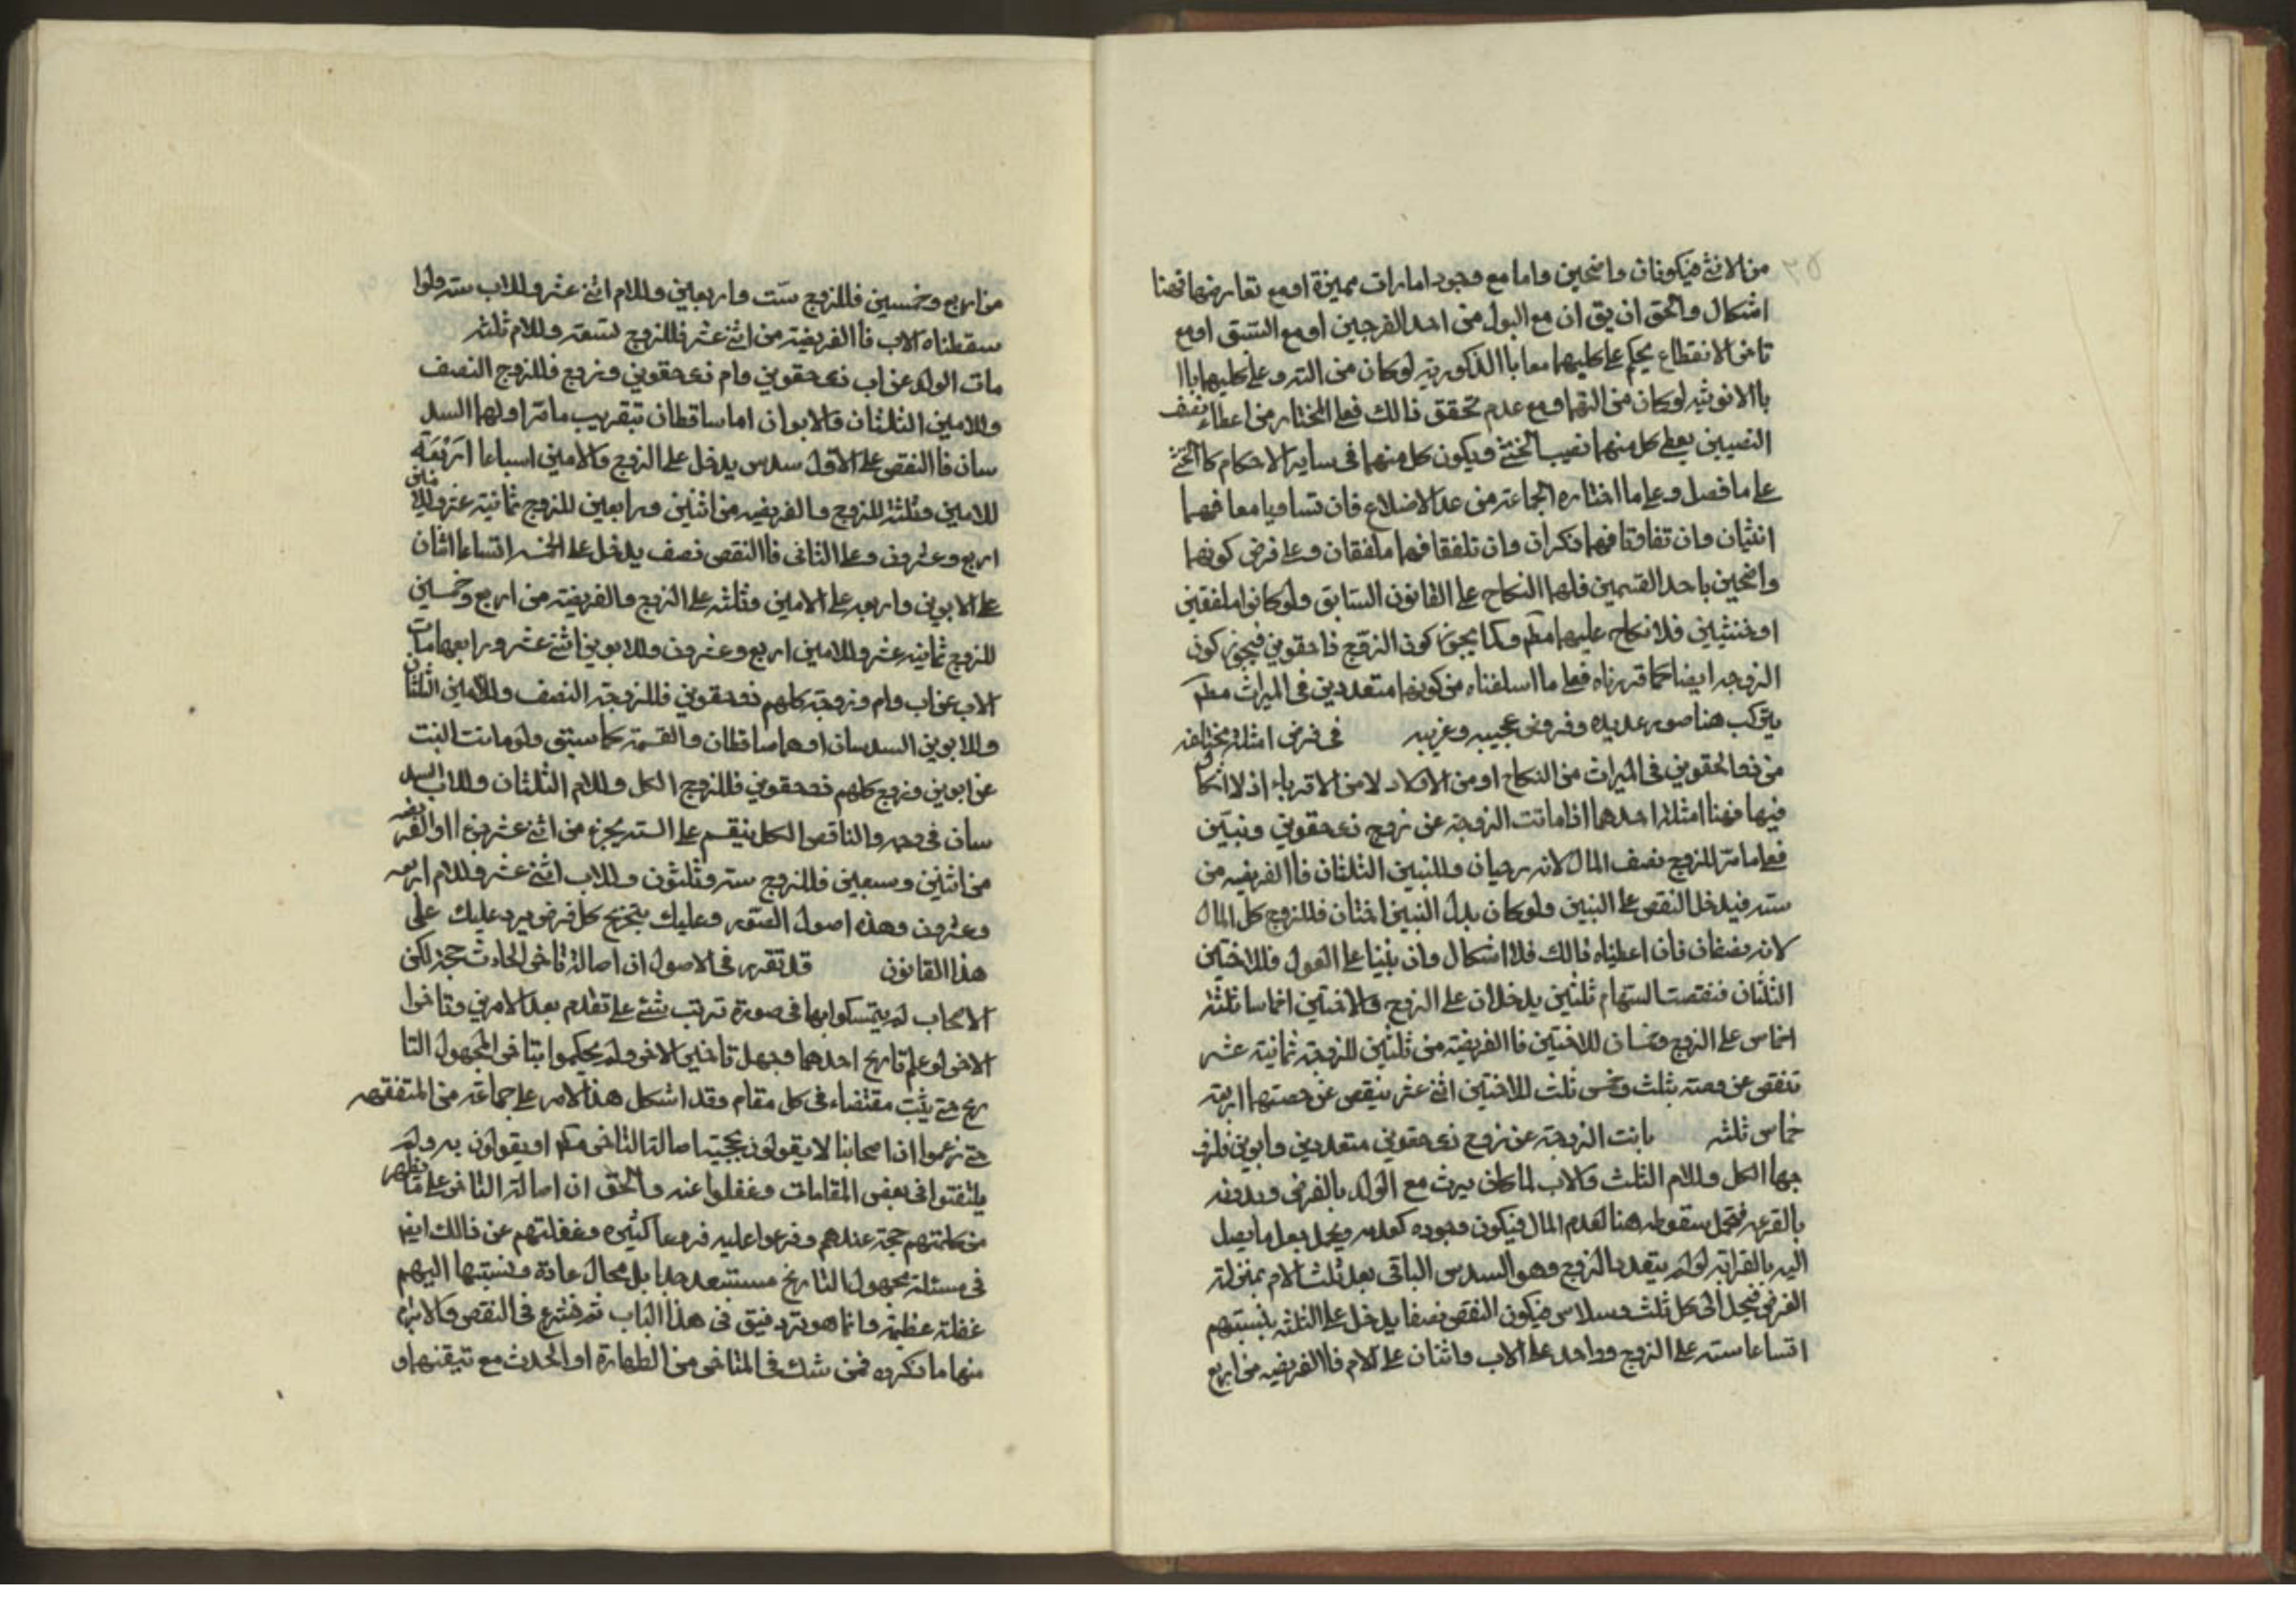 من الانثى فيكونان واضحين واما مع وجود امارات مميزة او مع تعارضها فهنا
اشكال والحق ان يق ان مع البول من احد الفرجين او مع السبق او مع
تاخر الانقطاع يحكم على كليهما معا باالذكورية لوكان من الذكر وعلى كليهما باا
باالانوثيه لوكان من الفرج ومع عدم تحقق ذالك فعلى المختار من اعطاء نصف
النصيبين يعطى كل منهما نصيب الخنثى ويكون كل منهما فى ساير الاحكام كاالخنثى
على ما فصل وعلى ما اختاره الجماعة من عد الاضلاع فان تساويا معا فهما
انثيان وان تفاوتا فهما ذكران وان تلفقا فهما ملفقان وعلى فرض كونهما
واضحين باحد القسمين فلهما النكاح على القانون السابق ولو كانوا ملفقين
او خنثيين فلا نكاح عليهما مطم وكما يجوز كون الزوج ذا حقوين فيجوز كون
الزوجه ايضا كما قررناه فعلى ما اسلفناه من كونهما متعددين فى الميراث مطم
يتركب هنا صور عديده وفروض عجيبه وغريبه في فرض امثلة مختلفه
من ذو الحقوين فى الميراث من النكاح او من الاولاد لا من الاقرباء اذ لا اشكال
فيها فهنا امثلة احدهما اذا ماتت الزوجة عن زوج ذى حقوين وبنتين
فعلى ما مر للزوج نصف المال لانه رجيان وللبنتين الثلثان فاالفريضه من
سته فيدخل النقص على البنتين ولو كان بدل البنتين اختان فللزوج كل المال
لانه نصفان فان اعطيناه ذالك فلا اشكال وان بنينا على العول فللاختين
الثلثان فنقصت السهام ثلثين يدخلان على الزوج والاختين اخماسا ثلثة
اخماس على الزوج وخمسان للاختين فاالفريضة من ثلثين للزوجة ثمانية عشر
تنقص عن حصته بثلث وخمس ثلث للاختين اثنى عشر ينقص عن حصتهما اربعة
خماس ثلثه ماتت الزوجة عن زوج ذى حقوين متعددين وابوين فلزو
جها الكل وللام الثلث والاب لما كان يرث مع الولد بالفرض وبدونه
بالقربه فيحتمل سقوطه هنا لعدم المال فيكون وجوده كعدمه ويحتمل جعل ما يصل
اليه بالقرابة لو لم يتعدد الزوج وهو السدس الباقى بعد ثلث الام بمنزلة
الفرض فيجعل الى كل ثلث وسدس فيكون النقص نصفا يدخل على الثلثه بنسبتهم
اتساعا سته على الزوج وواحد على الاب واثنان على الام فاالفريضه من اربع
من اربع وخمسين فللزوج ست واربعين وللام اثنى عشر وللاب سته ولوا
سقطناه الاب فاالفريضة من اثنى عشر فللزوج تسعة وللام ثلثه
مات الولد عن اب ذى حقوين وام ذى حقوين وزوج فللزوج النصف
وللامين الثلثان والابوان اما ساقطان بتقريب ما مر او لهما السد
سان فاالنقص على الاول سدس يدخل على الزوج والامين اسباعا اربعة
للامين وثلثة للزوج والفريضه من اثنين واربعين للزوج ثمانية عشر وللامين
اربع وعشرون وعلى الثانى فاالنقص نصف يدخل على الخمسة اتساعا اثنان
على الابوين واربعه على الامين وثلثه على الزوج والفريضة من اربع وخمسين
للزوج ثمانيه عشر وللامين اربع وعشرون وللابوين اثنى عشر ورابعها مات
الاب عن اب وام وزوجة كلهم ذو حقوين فللزوجة النصف وللامين الثلثان
وللابوين السدسان او هما ساقطان والقسمة كما سبق ولو ماتت البنت
عن ابوين وزوج كلهم ذو حقوين فللزوج الكل وللام الثلثان وللاب السد
سان فى وجه والناقص الكل ينقسم على الستة يخرج من اثنى عشر جزءا او الفريضه
من اثنين وسبعين فللزوج سته وثلثون وللاب اثنى عشر وللام اربعه
وعشرون وهذه اصول الصور وعليك بتخريج كل فرض يرد عليك على
هذا القانون قد تقرر فى الاصول ان اصالة تاخر الحادث حجة لكن
الاصحاب لم يتمسكوا بها فى صورة ترتب شئ على تقدم بعد الامرين وتاخر ا
الاخر لو علم تاريخ احدهما وجهل تاخير الاخر ولم يحكموا بتاخر المجهول التا
ريخ حتى يثبت مقتضاه فى كل مقام وقد اشكل هذا الامر على جماعة من المتفقهه
حتى زعموا ان اصحابنا لا يقولون بحجية اصالة التاخر مطم او يقولون به ولم
يلتفتوا فى بعض المقامات وغفلوا عنه والحق ان اصالة التاخر على ما يظهر
من كلمتهم حجة عندهم وفرعوا عليه فروعا كثيره وغفلتهم عن ذالك ايضا
فى مسئلة مجهول التاريخ مستبعد جدا بل محال عادة ونسبتها اليهم
غفلة عظيمة وانما هو تردقيق فى هذا الباب ثم فى النقص والابرام
منها ما ذكروه فمن شك فى المتاخر من الطهارة او الحدث مع تيقنهما و